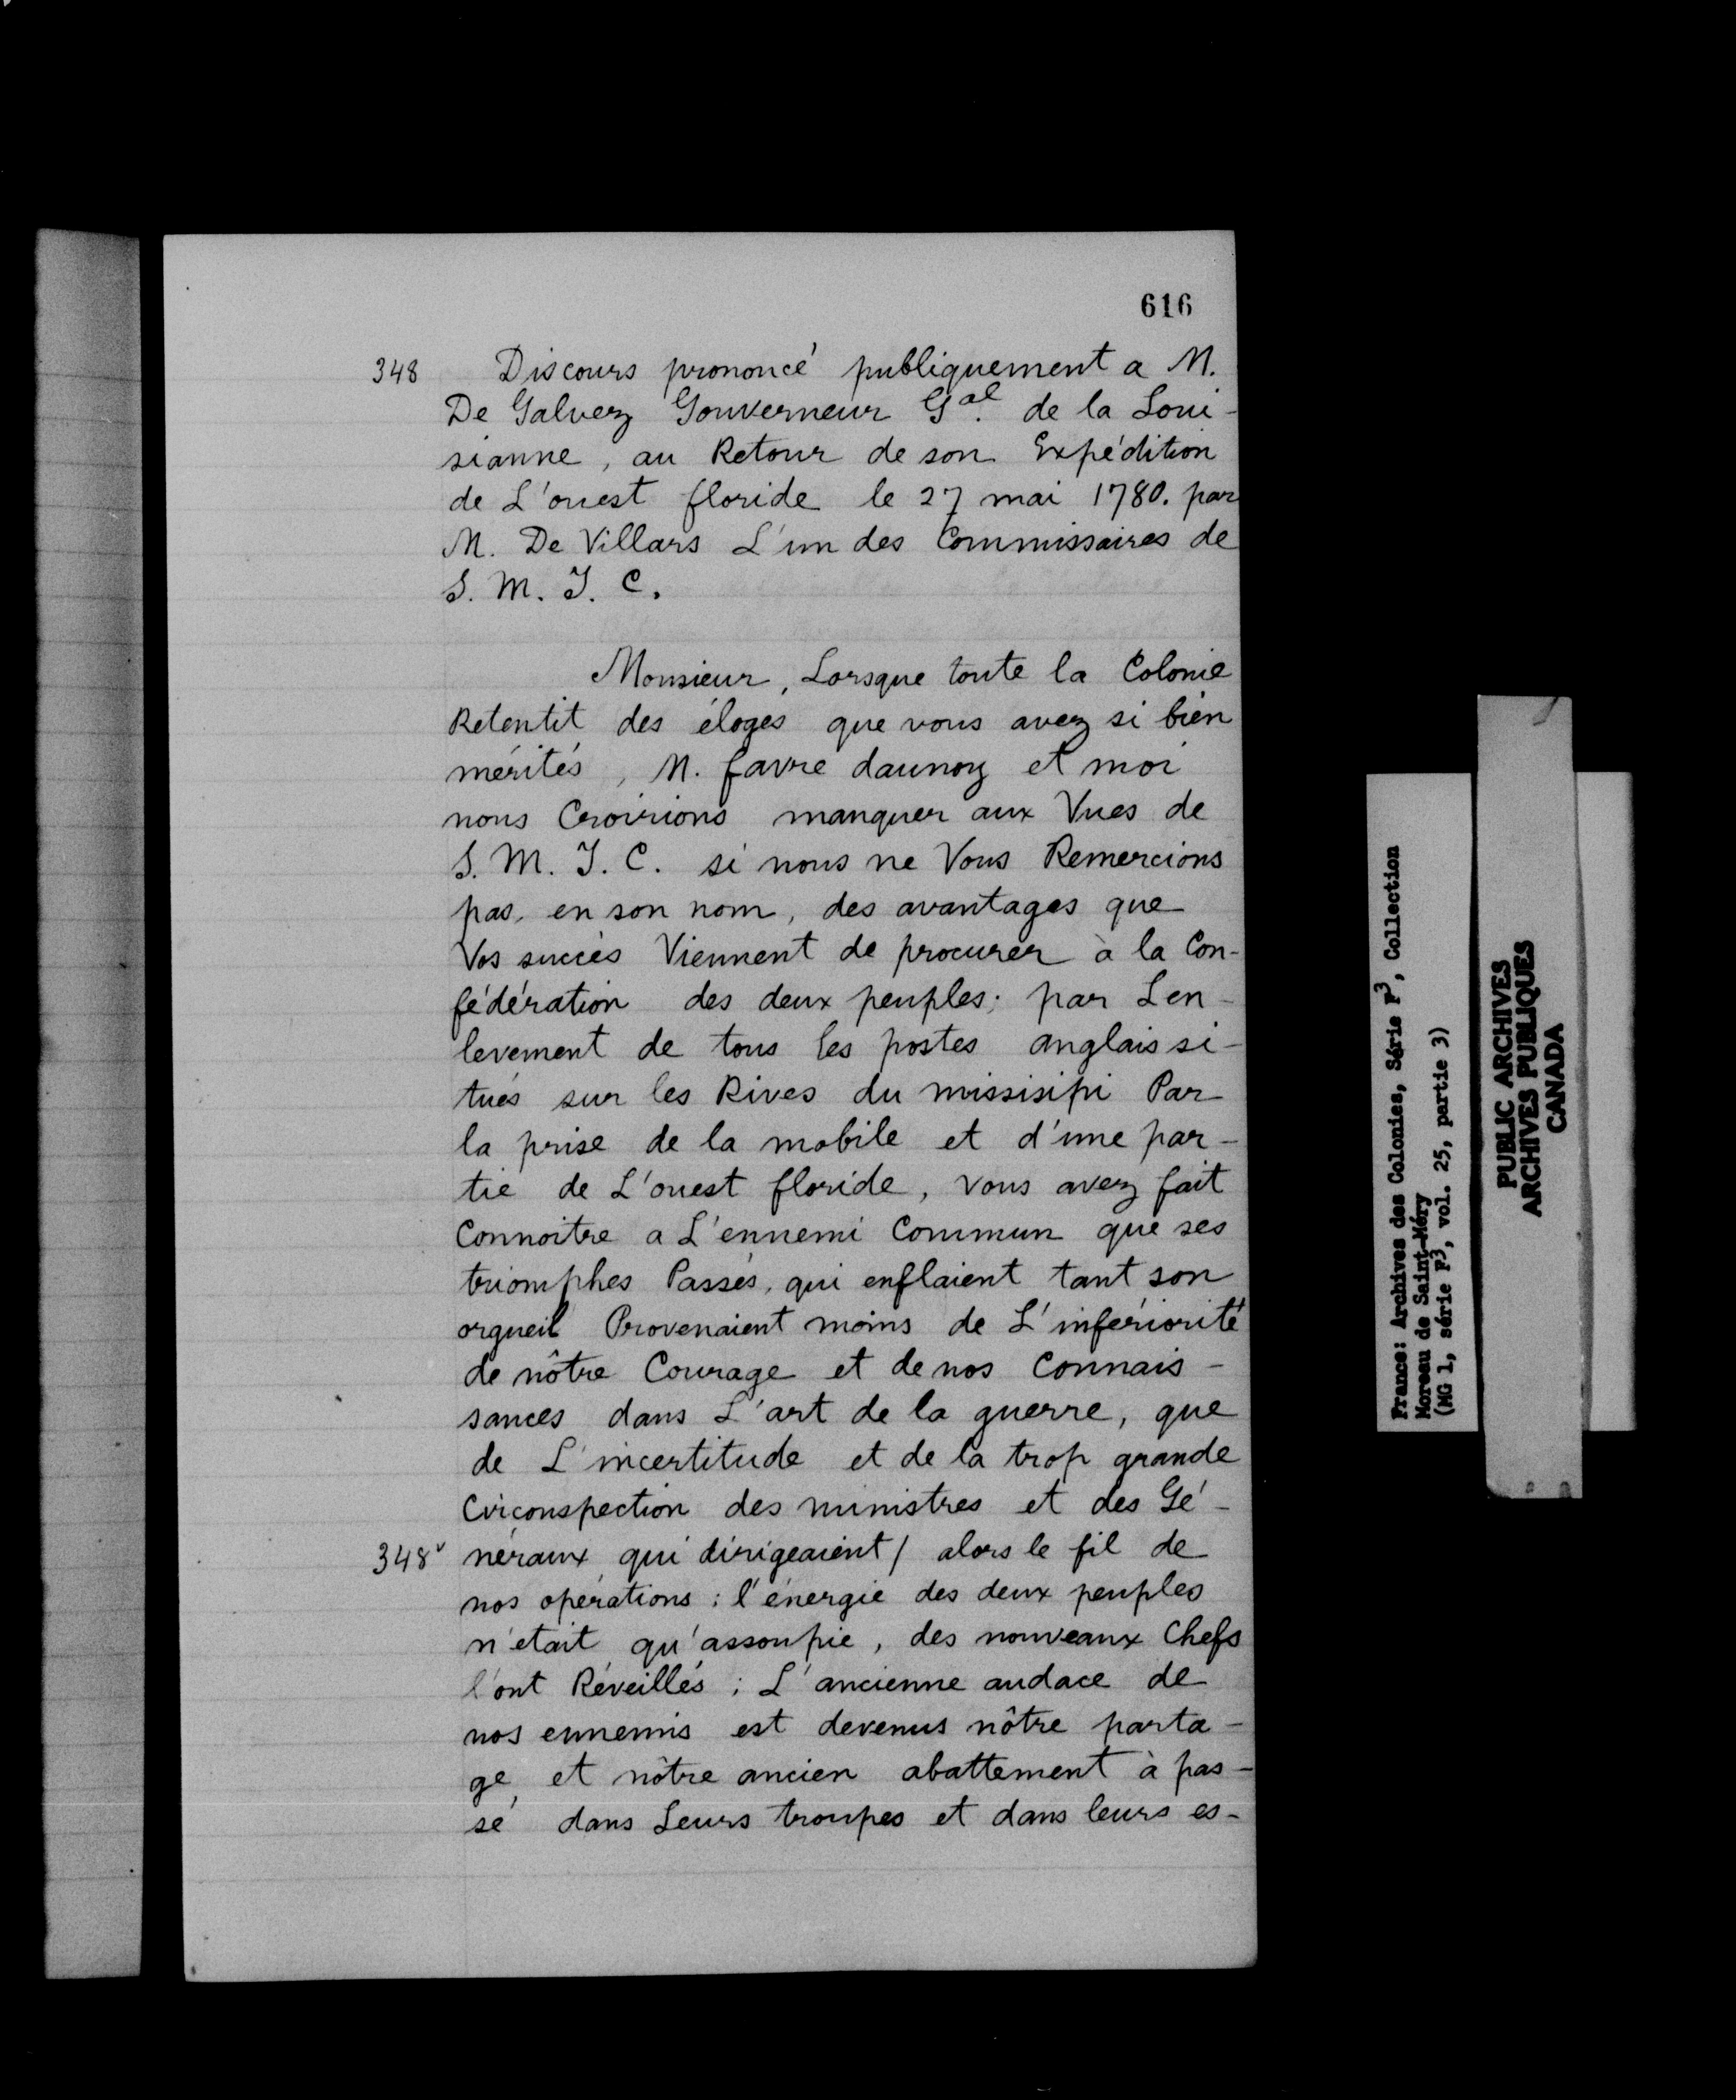 616
348 Discours prononcé publiquement a M.
De Galvez Gouverneur Gal. de la Loui-
sianne, au Retour de son Expédition
de L'ouest floride le 27 mai 1780. par
M. De Villars L'un des Commissaires de
S. M. T. C.
Monsieur, Lorsque toute la Colonie
Retentit des éloges que vous avez si bien
mérités, M. favre daunoy et moi
nous Croirions manquer aux Vues de
S. M. T. C. si nous ne Vous Remercions
pas, en son nom, des avantages que
Vos succès Viennent de procurer à la Con-
fédération des deux peuples; par L'en-
levement de tous les postes anglais si-
tués sur les Rives du missisipi Par
la prise de la mobile et d'une par-
tie de L'ouest floride, vous avez fait
Connoitre a L'ennemi Commun que ses
triomphes Passés, qui enflaient tant son
orgueil Provenaient moins de L'infériorité
de nôtre Courage et de nos Connais-
sances dans L'art de la guerre, que
de L'incertitude et de la trop grande
Circonspection des ministres et des Gé-
348v néraux qui dirigeaient / alors le fil de
nos opérations : l'énergie des deux peuples
n'etait qu'assoupie, des nouveaux Chefs
l'ont Réveillés ; L'ancienne audace de
nos ennemis est devenus nôtre parta-
ge, et nôtre ancien abattement à pas-
sé dans Leurs troupes et dans leurs es-
France: Archives des Colonies, Série F3, Collection
Moreau de Saint-Méry
(MG 1, série F3, vol. 25, partie 3)
PUBLIC ARCHIVES
ARCHIVES PUBLIQUES
CANADA